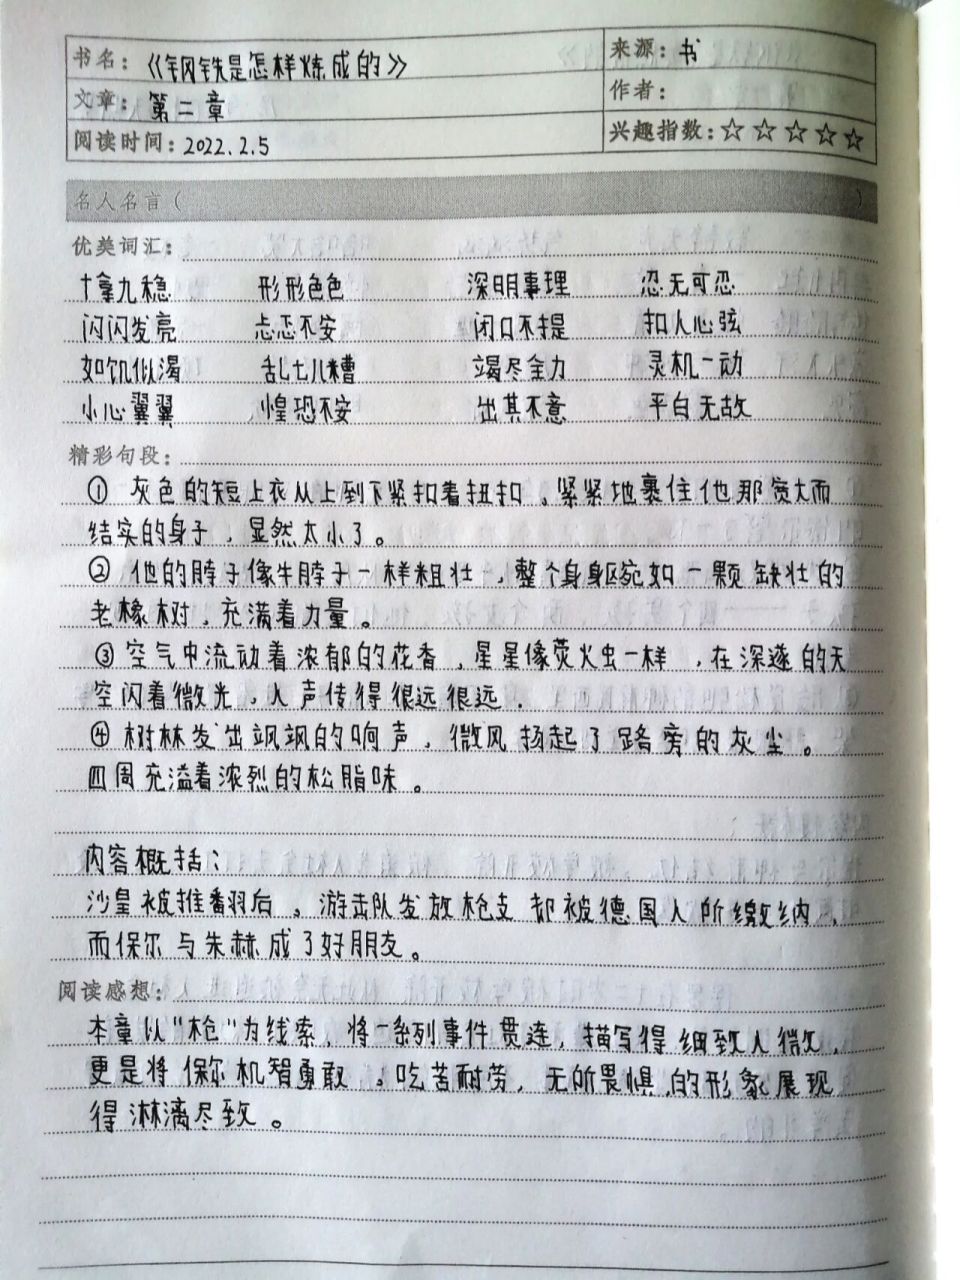 书名：《钢铁是怎样炼成的》 来源：书
文章：第二章 作者：
阅读时间：2022.2.5 兴趣指数：☆☆☆☆☆
名人名言（ ）
优美词汇：
十拿九稳 形形色色 深明事理 忍无可忍
闪闪发亮 忐忑不安 闭口不提 扣人心弦
如饥似渴 乱七八糟 竭尽全力 灵机一动
小心翼翼 惶恐不安 出其不意 平白无故
精彩句段：
① 灰色的短上衣从上到下紧扣着扭扣，紧紧地裹住他那宽大而
结实的身子，显然太小了。
② 他的脖子像牛脖子一样粗壮，整个身躯宛如一颗缺壮的
老橡树，充满着力量。
③ 空气中流动着浓郁的花香，星星像荧火虫一样，在深邃的天
空闪着微光，人声传得很远很远.
④ 树林发出飒飒的响声，微风扬起了路旁的灰尘。
四周充溢着浓烈的松脂味。
内容概括：
沙皇被推翻后，游击队发放枪支却被德国人所缴纳，
而保尔与朱赫成了好朋友。
阅读感想：
本章以"枪"为线索，将一系列事件贯连，描写得细致入微，
更是将保尔机智勇敢，吃苦耐劳，无所畏惧的形象展现
得淋漓尽致。